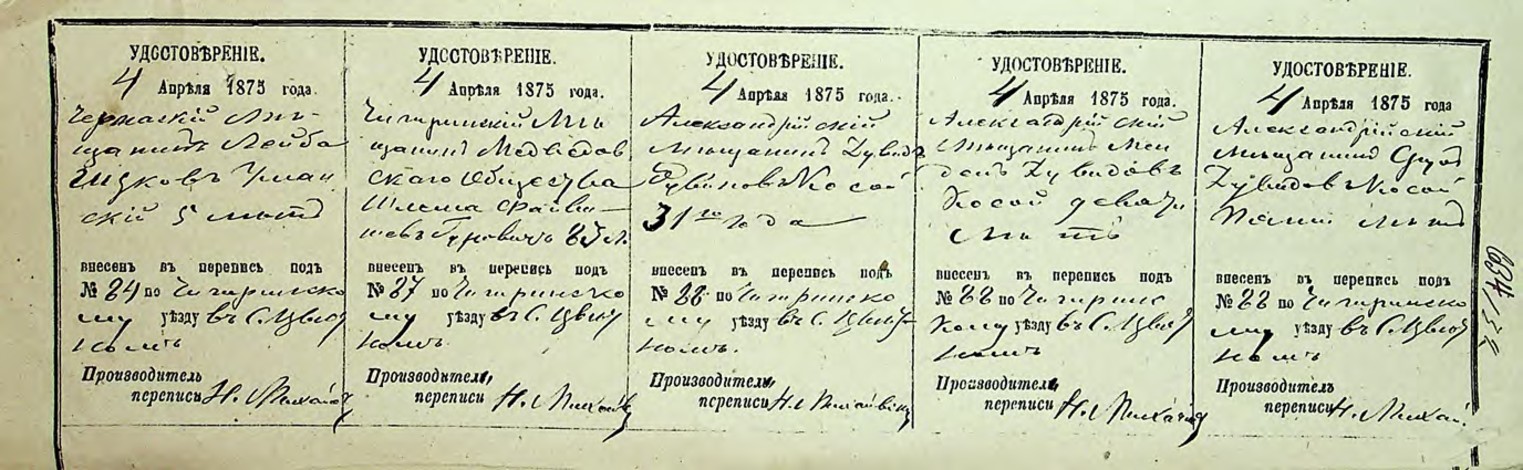 УДОСТОВѢРЕНІЕ.
4 Апрѣля 1875 года.
Черкаскій Мѣ-
щанинъ Лейба
Ицковъ Уман
скій 5 лѣтъ
внесенъ въ перепись подъ
№ 84 по Чигиринско
му уѣзду въ С. Цвѣт
номъ
Производитель
переписи Н. Михай
УДОСТОВѢРЕНІЕ.
4 Апрѣля 1875 года.
Чигиринскій Мѣ
щанинъ Медвѣдов
скаго Общества
Шлема Файви-
шевъ Гуровичъ 23 л.
внесенъ въ перепись подъ
№ 87 по Чигиринско
му уѣзду въ С. Цвѣт
номъ.
Производитель
переписи Н. Михай
УДОСТОВѢРЕНІЕ.
4 Апрѣля 1875 года.
Александрійскій
мѣщанинъ Дувидъ
Рувиновъ Косой
31го года
внесенъ въ перепись подъ
№ 88 по Чигиринско
му уѣзду въ С. Цвѣт-
номъ.
Производитель
переписи Н. Михай
УДОСТОВѢРЕНІЕ.
4 Апрѣля 1875 года.
Александрійскій
Мѣщанинъ
Дувидовъ
Косой девяти
лѣтъ
внесенъ въ перепись подъ
№ 88 по Чигиринс
кому уѣзду въ С. Цвѣт
номъ
Производитель
переписи Н. Михай
УДОСТОВѢРЕНІЕ.
4 Апрѣля 1875 года
Александрійскій
мѣщанинъ Сруль
Дувидовъ Косой
лѣтъ
внесенъ въ перепись подъ
№ 88 по Чигиринско
му уѣзду въ С. Цвѣт
номъ
Производитель
переписи Н. Михай.